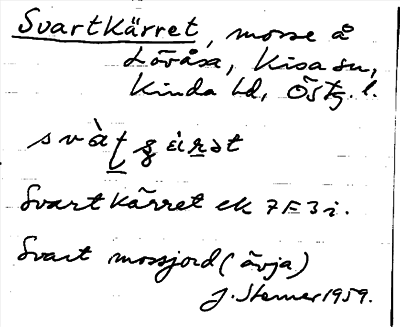 Svartkärret, mosse å
Lövåsa, Kisa sn,
Kinda hd, Östg. l.
Svartkärret ek 7F3i.
Svart mossjord (ävja)
J. Sterner 1959.